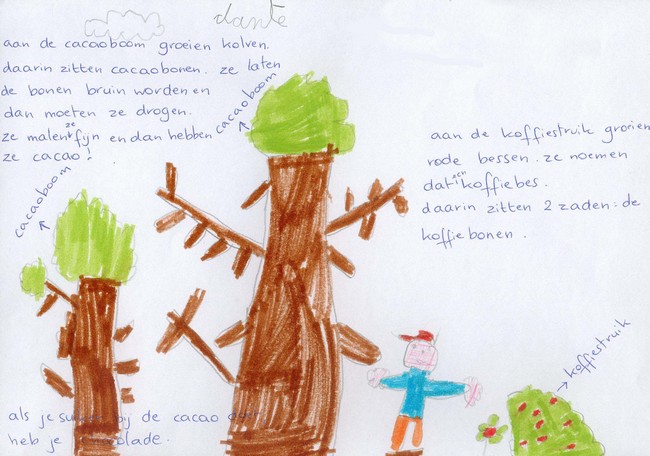 dante
aan de cacaoboom groeien kolven.
daarin zitten cacaobonen. ze laten
de bonen bruin worden en
dan moeten ze drogen.
ze malen ze fijn en dan hebben
ze cacao!
cacaoboom
cacaoboom
aan de koffiestruik groeien
rode bessen. ze noemen
dat een koffiebes.
daarin zitten 2 zaden: de
koffiebonen.
koffiestruik
als je suiker bij de cacao doet
heb je chocolade.